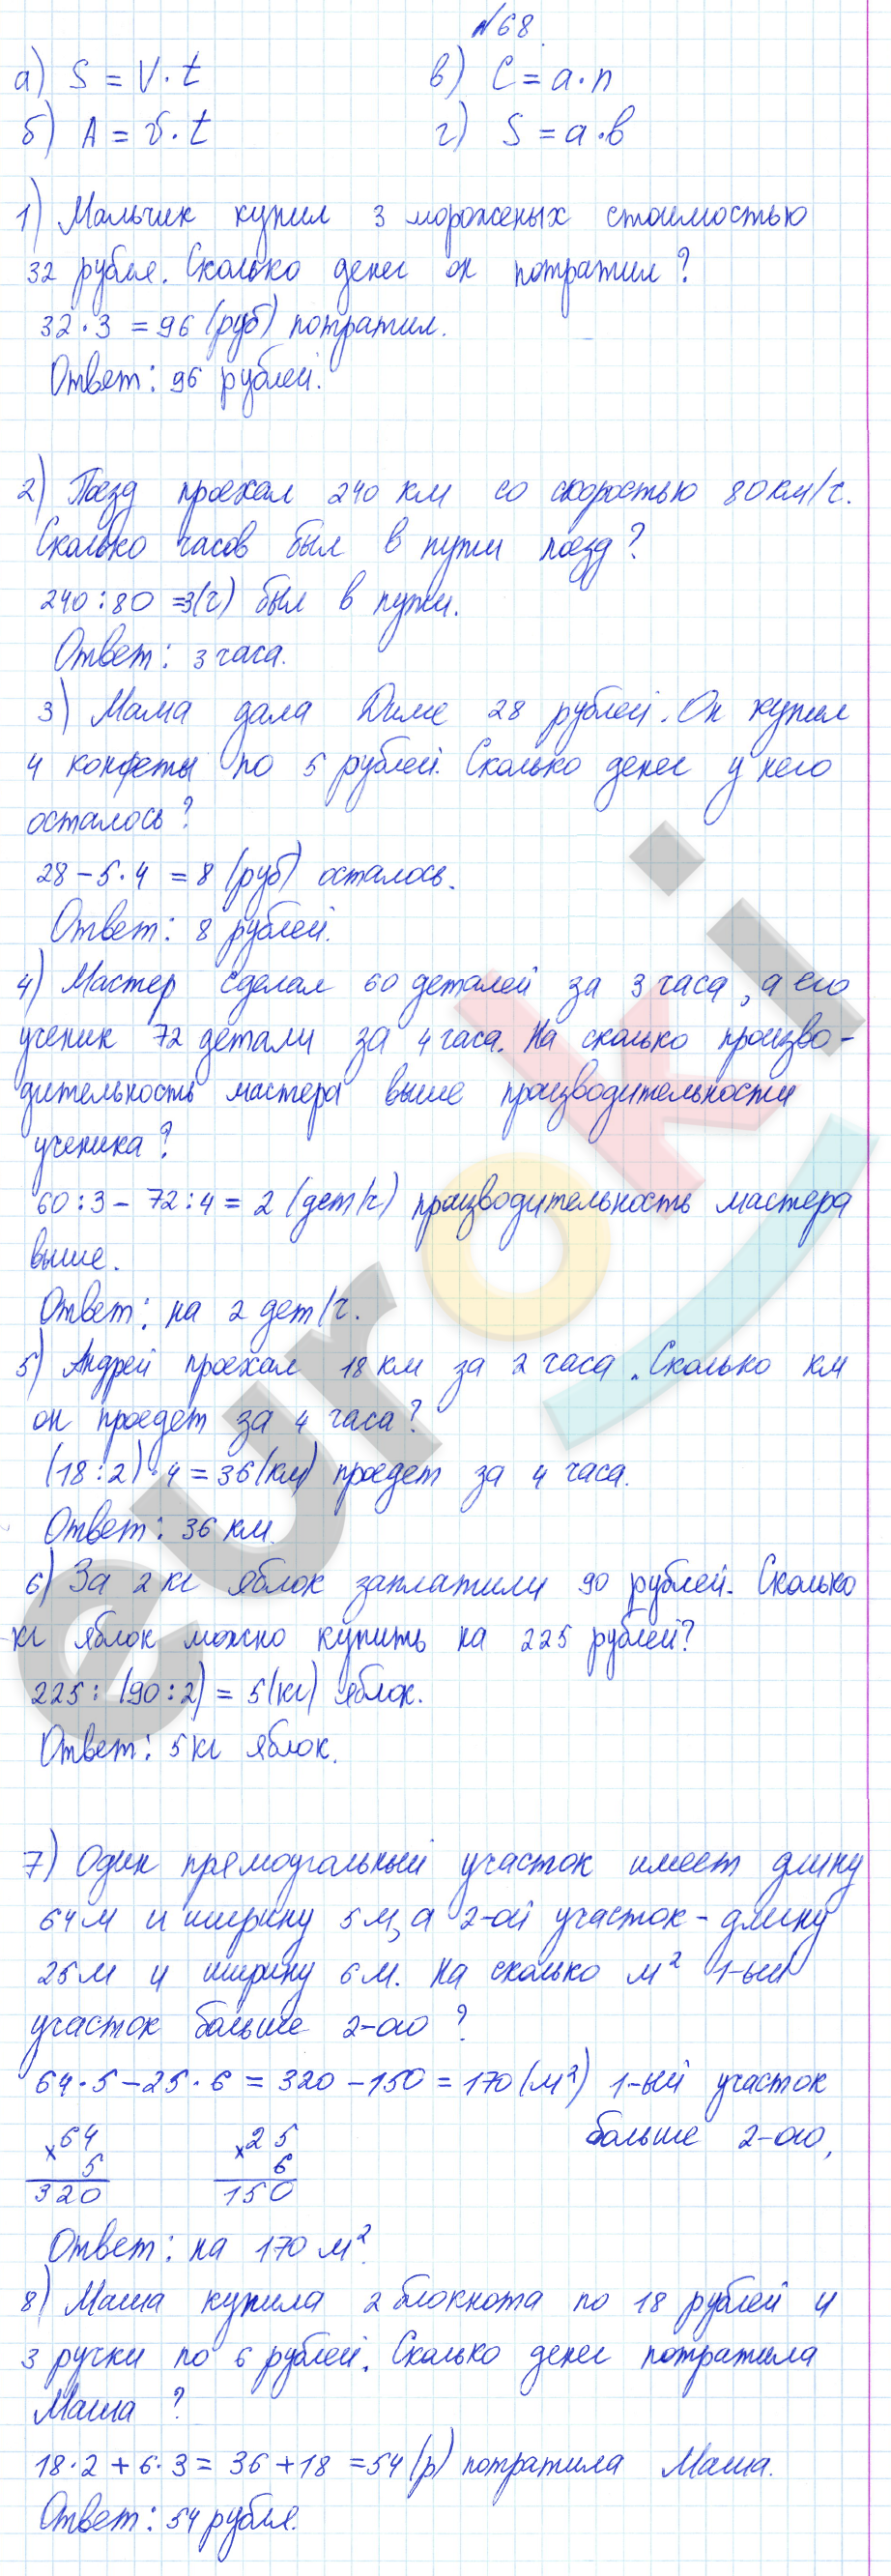 №68.
а) S = V·t в) C = a·n
б) A = v·t г) S = a·b
1) Мальчик купил 3 мороженых стоимостью
32 рубля. Сколько денег он потратил?
32·3 = 96 (руб) потратил.
Ответ: 96 рублей.
2) Поезд проехал 240 км со скоростью 80км/ч.
Сколько часов был в пути поезд?
240:80 =3(ч) был в пути.
Ответ: 3 часа.
3) Мама дала Диме 28 рублей. Он купил
4 конфеты по 5 рублей. Сколько денег у него
осталось?
28-5·4 = 8 (руб) осталось.
Ответ: 8 рублей.
4) Мастер сделал 60 деталей за 3 часа, а его
ученик 72 детали за 4 часа. На сколько произво-
дительность мастера выше производительности
ученика?
60:3 - 72:4 = 2 (дет/ч) производительность мастера
выше.
Ответ: на 2 дет/ч.
5) Андрей проехал 18 км за 2 часа. Сколько км
он проедет за 4 часа?
(18:2)·4 = 36(км) проедет за 4 часа.
Ответ: 36 км.
6) За 2 кг яблок заплатили 90 рублей. Сколько
кг яблок можно купить на 225 рублей?
225: (90:2) = 5(кг) яблок.
Ответ: 5 кг яблок.
7) Один прямоугольный участок имеет длину
64м и ширину 5м, а 2-ой участок - длину
25м и ширину 6м. На сколько м² 1-ый
участок больше 2-ого?
64·5-25·6 = 320-150 = 170(м²) 1-ый участок
больше 2-ого,
×64 ×25
5 6
320 150
Ответ: на 170 м².
8) Маша купила 2 блокнота по 18 рублей и
3 ручки по 6 рублей. Сколько денег потратила
Маша?
18·2 + 6·3 = 36 + 18 = 54 (р) потратила Маша.
Ответ: 54 рубля.
euroki